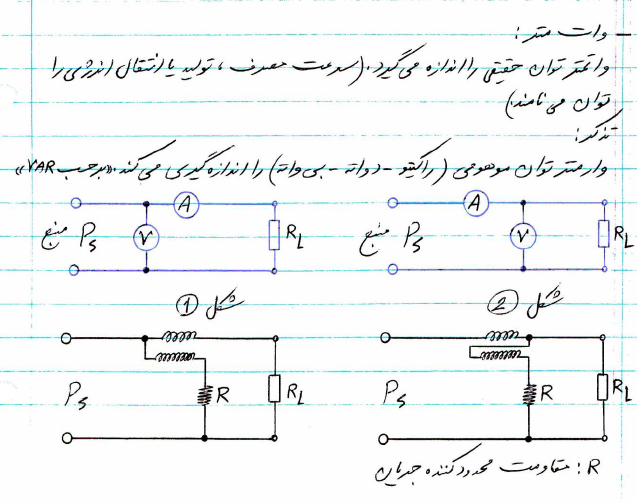 – وات متر :
واتمتر توان حقیقی را اندازه می گیرد. (سرعت مصرف ، تولید یا انتقال انرژی را
توان می نامند.)
تذکر:
وارمتر توان موهومی (راکتیو - دواته - بی واته) را اندازه گیری می کند. «برحسب VAR»
منبع Ps V A RL
منبع Ps A V RL
شکل 1
شکل 2
Ps R RL
Ps R RL
R : مقاومت محدود کننده جریان